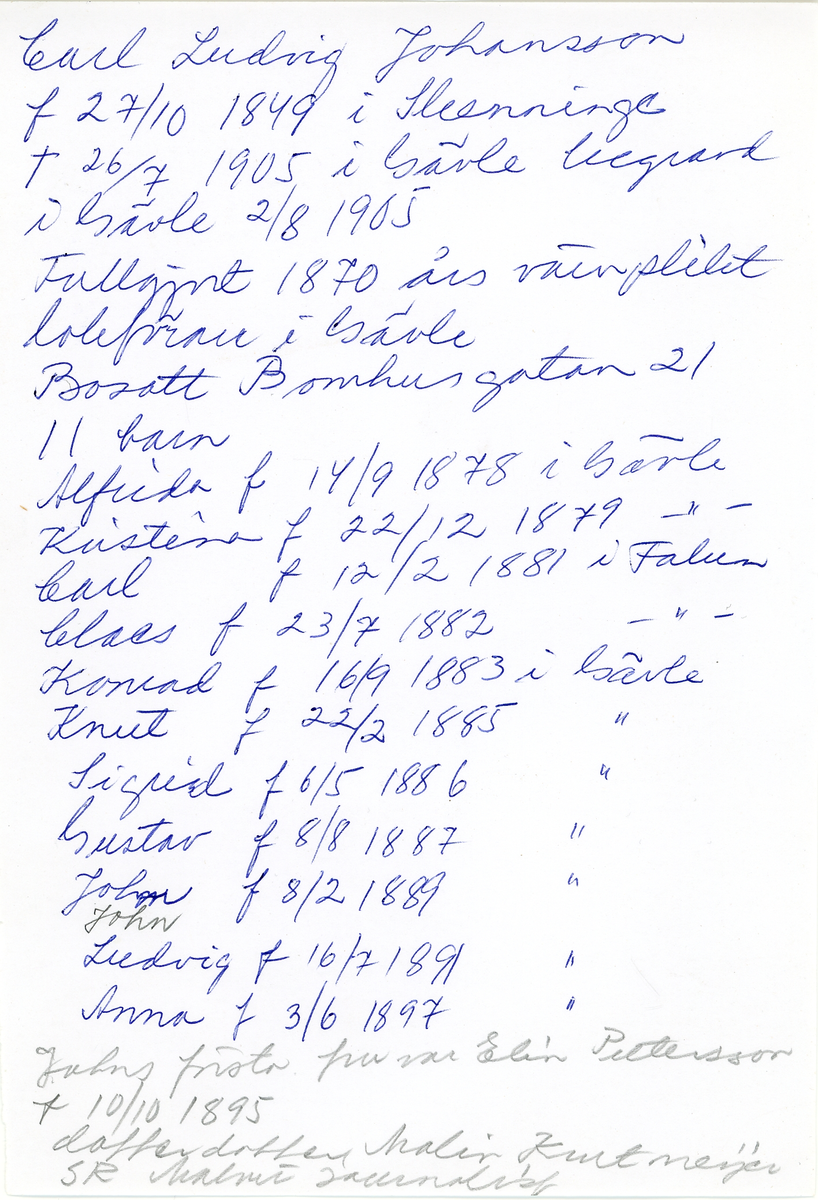 Carl Ludvig Johansson
f 27/10 1849 i Slesninge
† 26/7 1905 i Gävle begravd
i Gävle 2/8 1905
Fullgjort 1870 års värnplikt
lokförare i Gävle
Bosatt Bomhusgatan 21
11 barn
Alfrida f 14/9 1878 i Gävle
Kristina f 22/12 1879 -"-
Carl f 12/2 1881 i Falun
Claes f 23/7 1882 -"-
Konrad f 16/9 1883 i Gävle
Knut f 22/2 1885 "
Sigrid f 6/5 1886 "
Gustav f 8/8 1887 "
John f 8/2 1889 "
John
Ludvig f 16/7 1891 "
Anna f 3/6 1897 "
Johns första fru var Elin Pettersson
† 10/10 1895
dotterdotter Malin Kurtmeijer
SR Malmö journalist